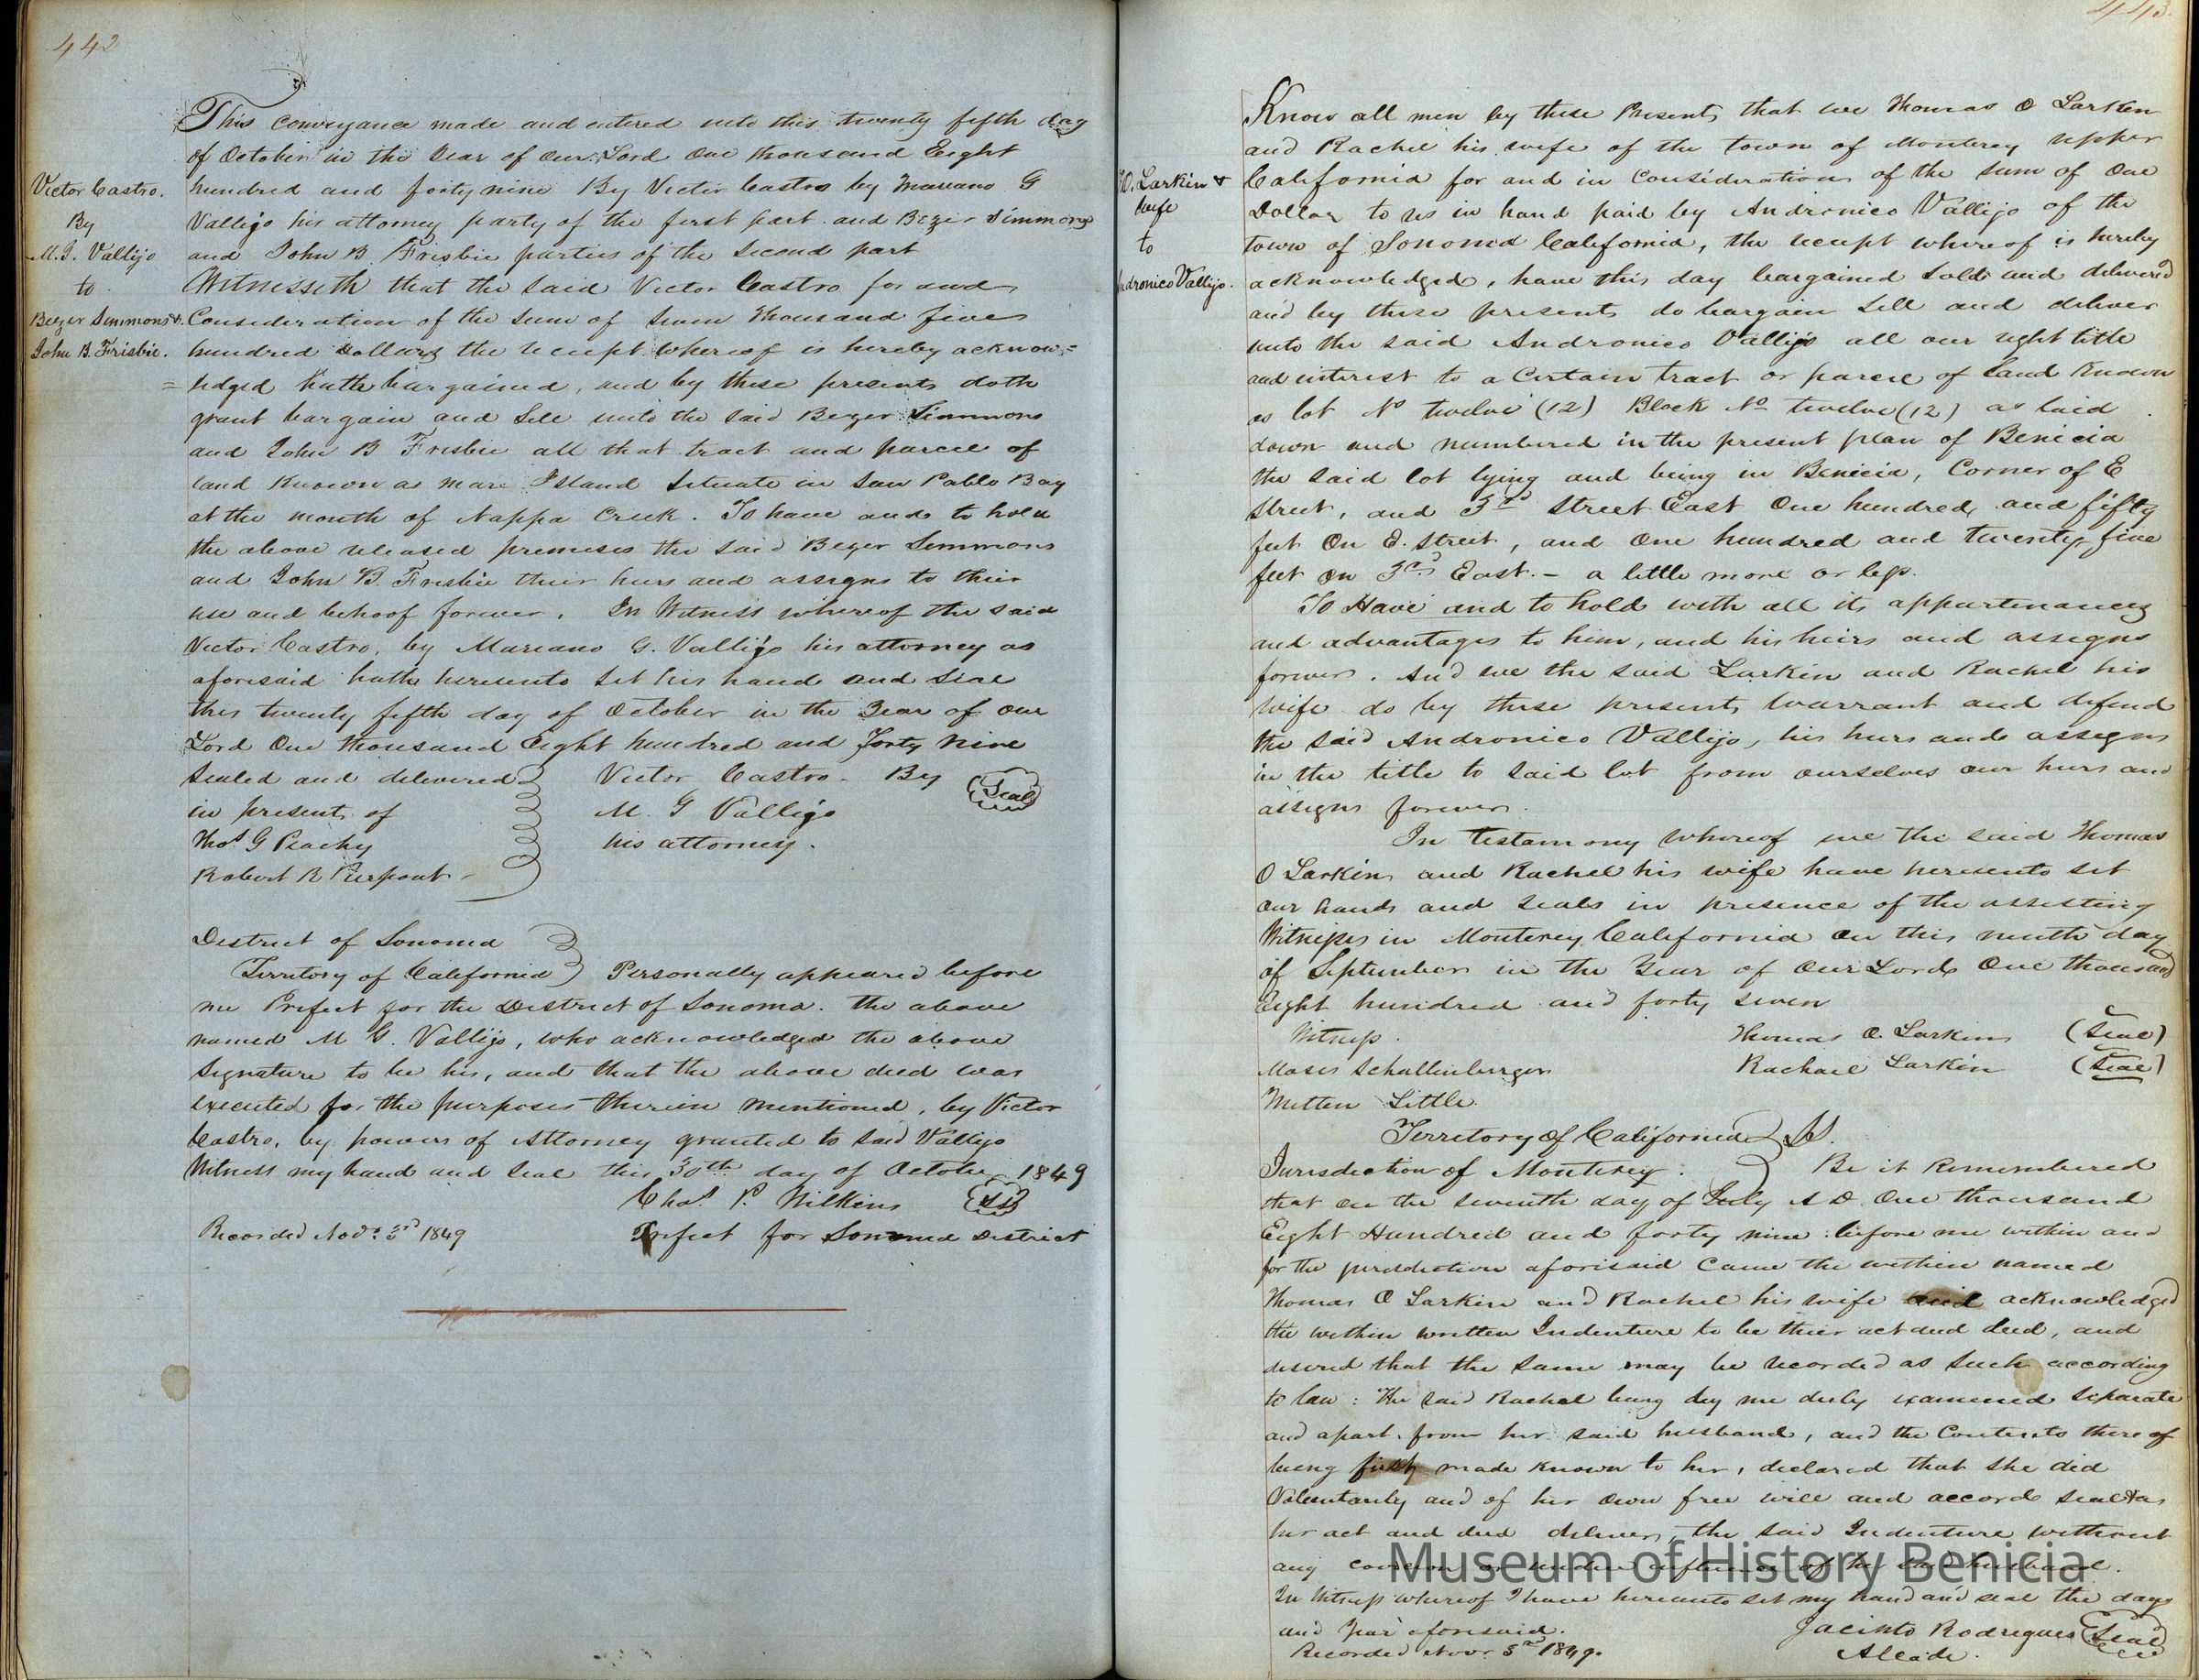 442
This Conveyance made and entered into this twenty fifth day
of October in the Year of Our Lord One thousand Eight
hundred and forty nine By Victor Castro by Mariano G
Vallijo his attorney party of the first part and Bezer Simmons
and John B. Frisbie parties of the Second part
Witnesseth that the said Victor Castro for and
Consideration of the Sum of Seven Thousand five
hundred Dollars the receipt whereof is hereby acknow=
=ledged hath bargained, and by these presents doth
grant bargain and Sell unto the said Bezer Simmons
and John B Frisbie all that tract and parcel of
land Known as Mare Island Situate in San Pablo Bay
at the mouth of Nappa Creek. To have and to hold
the above released premises the said Bezer Simmons
and John B. Frisbie their heirs and assigns to their
use and behoof forever. In Witness whereof the said
Victor Castro, by Mariano G. Vallijo his attorney as
aforesaid hath hereunto Set his hand and Seal
this twenty fifth day of October in the Year of Our
Lord One thousand Eight hundred and forty Nine
Sealed and delivered
in presents of
Thos G Peachy
Robert R Pierpont
Victor Castro. By (Seal)
M. G Vallijo
his attorney.
District of Sonoma
Territory of California) Personally appeared before
me Prefect for the District of Sonoma. the above
named M G. Vallijo, who acknowledged the above
Signature to be his, and that the above deed was
executed for the purposes therein mentioned, by Victor
Castro, by power of Attorney granted to said Vallijo
Witness my hand and Seal this 30th day of October 1849
Chas. P. Wilkins
Recorded Nov: 3rd 1849
Prefect for Sonoma District
Victor Castro.
By
M. G. Vallijo
to
Bezer Simmons &
John B. Frisbie.
443.
Know all men by these Presents that we Thomas O Larken
and Rachel his wife of the town of Monterey upper
California for and in Consideration of the sum of One
Dollar to us in hand paid by Andronico Vallijo of the
town of Sonoma California, the receipt whereof is hereby
acknowledged, have this day bargained Sold and delivered
and by these presents do bargain Sell and deliver
unto the said Andronico Vallijo all our right title
and interest to a Certain tract or parcel of land Known
as lot No twelve (12) Block No twelve (12) as laid
down and numbered in the present plan of Benicia
the said lot lying and being in Benicia, Corner of E
Street, and 3rd Street East One hundred and fifty
feet On E. Street, and One hundred and twenty five
feet On 3rd East. – a little more or less.
To Have and to hold with all its appurtenances
and advantages to him, and his heirs and assigns
forever. And we the said Larkin and Rachel his
wife do by these presents warrant and defend
the said Andronico Vallijo, his heirs and assigns
in the title to said lot from ourselves our heirs and
assigns forever.
In testamony whereof we the said Thomas
O Larkin and Rachel his wife have hereunto set
our hands and seals in presence of the assisting
Witnesses in Monterey California on this ninth day
of September in the Year of Our Lord One thousand
Eight hundred and forty seven
Witness. Thomas O. Larkin (Seal)
Moses Schallenberger Rachael Larkin (Seal)
Milton Little.
Territory of California } SS.
Jurisdiction of Monterey. Be it Remembered
that on the seventh day of July A D. One thousand
Eight Hundred and forty nine: before me within and
for the jurisdiction aforesaid Came the within named
Thomas O Larkin and Rachel his wife and acknowledged
the within written Indenture to be their act and deed, and
desired that the same may be recorded as such according
to law: the said Rachel being by me duly examined Separate
and apart from her said husband, and the Contents thereof
being first made Known to her, declared that she did
Voluntarily and of her own free will and accord seal & as
her act and deed deliver, the said Indenture without
any coercion or undue influence of her said husband.
In Witness whereof I have hereunto set my hand and seal the day
and Year aforesaid.
Jacinto Rodregues (Seal)
Recorded Novr. 3rd 1849.
Alcade.
T.O. Larkin &
wife
to
Andronico Vallijo.
Museum of History Benicia